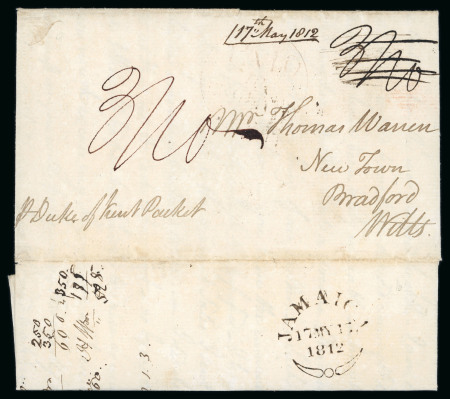 17th May 1812
3/10
3/10
Mr. Thomas Warren
New Town
Bradford
Wilts.
p Duke of Kent Packet
JAMAICA
17 MY
1812
250
350
600
1 3.